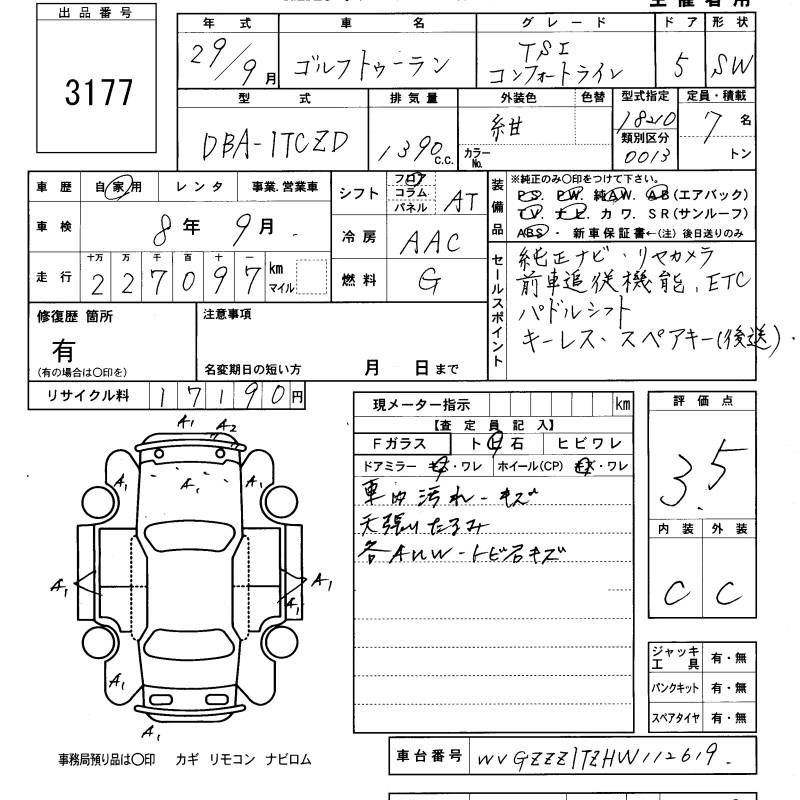 出品番号
3177
年式 車名 グレード ドア 形状
29/9月 ゴルフトゥーラン TSI コンフォートライン 5 SW
型式 排気量 外装色 色替 型式指定 定員・積載
DBA-1TCZD 1390 c.c. 紺 カラーNo. 18210 7名
類別区分
0013 トン
車歴 自家用 レンタ 事業.営業車
シフト フロア コラム パネル AT
車検 8年9月
冷房 AAC
走行 十万 万 千 百 十 一
227097 km マイル
燃料 G
装備品
※純正のみ○印をつけて下さい。
P.S. P.W. 純A.W. A.B(エアバック)
T.V ナビ. カワ. S.R(サンルーフ)
ABS・ 新車保証書←(注)後日送りのみ
セールスポイント
純正ナビ・リヤカメラ
前車追従機能、ETC
パドルシフト
キーレス、スペアキー(後送)・
修復歴 箇所
有
(有の場合は○印を)
注意事項
名変期日の短い方 月 日まで
リサイクル料 17190円
現メーター指示 km
【査定員記入】
Fガラス トビ石 ヒビワレ
ドアミラー キズ・ワレ ホイール(CP) キズ・ワレ
車内汚れ-キズ
天張りたるみ
各AWW-トビ石キズ
評価点
3.5
内装 外装
C C
A1 A2
A1 A1 A1
A1 A1
A1
A1
A1
ジャッキ工具 有・無
パンクキット 有・無
スペアタイヤ 有・無
事務局預り品は○印 カギ リモコン ナビロム
車台番号 WVGZZZ1TZHW112619.